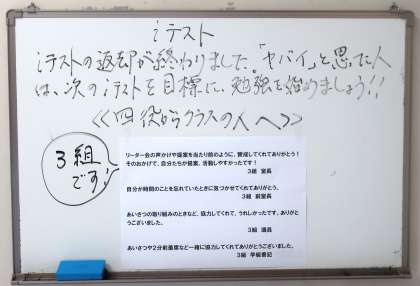 iテスト
iテストの返却が終わりました。「ヤバイ」と思った人
は、次のiテストを目標に、勉強を始めましょう!!
<<四役からクラスの人へ>>
3組
です!
リーダー会の声かけや提案を当たり前のように、賛成してくれてありがとう!
そのおかげで、自分たちが提案、活動しやすかったです!
3組 室長
自分が時間のことを忘れていたときに気づかせてくれてありがとう。
3組 副室長
あいさつの取り組みのときなど、協力してくれて、うれしかったです。ありがと
うございました。
3組 議員
あいさつや2分前着席など一緒に協力してくれてありがとうございました。
3組 学級書記